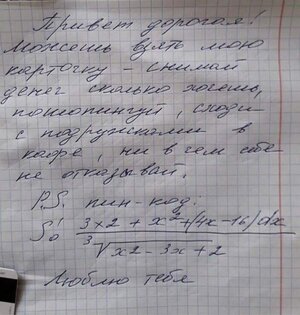 Привет дорогая!
Можешь взять мою
карточку – снимай
денег сколько хочешь,
пошопингуй, сходи
с подружками в
кафе, ни в чем себе
не отказывай.
P.S. пин-код:
S₀¹ 3×2 + x² + (4x - 16) dx
³√x2 - 3x + 2
Люблю тебя